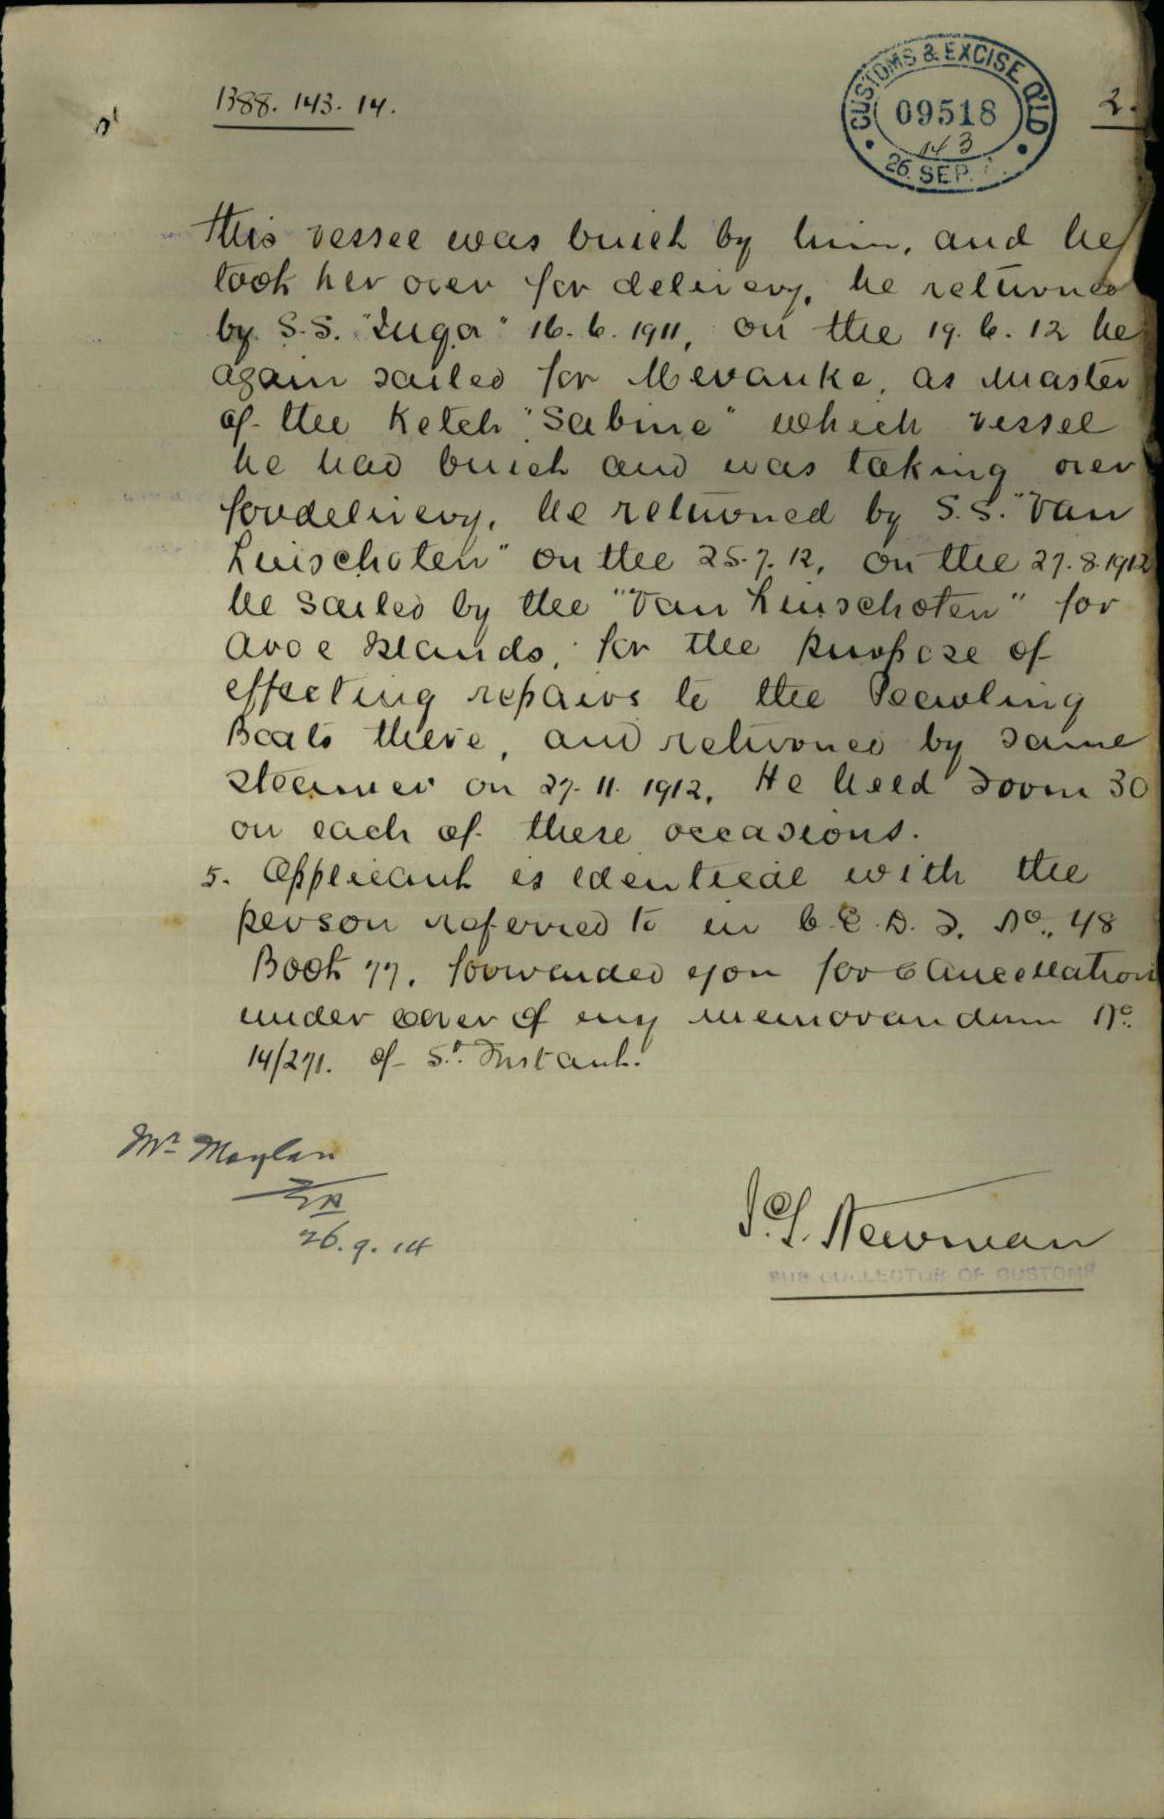 1388. 143. 14.
CUSTOMS & EXCISE Q'LD
09518
143
26. SEP.
2.
This vessel was built by him, and he
took her over for delivery, he returned
by S.S. "Zuga" 16.6.1911, on the 19.6.12 he
again sailed for Merauke, as Master
of the Ketch "Sabine" which vessel
he had built and was taking over
for delivery, he returned by S.S. "Van
Linschoten" on the 25.7.12, on the 27.8.1912
he sailed by the "Van Linschoten" for
Aroe Islands, for the purpose of
effecting repairs to the Pearling
Boats there, and returned by same
steamer on 27.11.1912. He held Form 30
on each of these occasions.
5. Applicant is identical with the
person referred to in C.E.D.T. No. 48
Book 77. forwarded you for Cancellation
under cover of my memorandum No.
14/271. of 5th Instant.
Mr Moylan
26.9.14
Newman
SUB COLLECTOR OF CUSTOMS